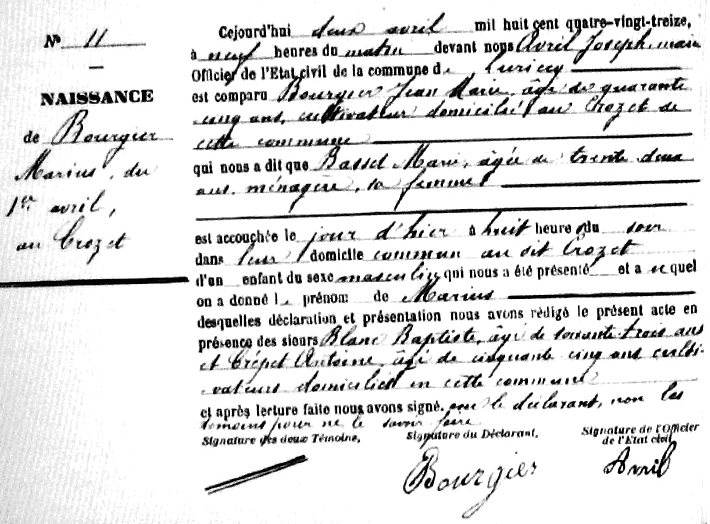 Nº 11
NAISSANCE
de Bourgier
Marius, du
1er avril,
au Crozet
Cejourd'hui deux avril mil huit cent quatre-vingt-treize,
à neuf heures du matin devant nous Avril Joseph, maire
Officier de l'Etat civil de la commune de Luriecq
est comparu Bourgier Jean Marie, âgé de quarante
cinq ans, cultivateur domicilié au Crozet de
cette commune
qui nous a dit que Basset Marie, âgée de trente deux
ans, ménagère, sa femme
est accouchée le jour d'hier à huit heure du soir
dans leur domicile commun au dit Crozet
d'un enfant du sexe masculin qui nous a été présenté et auquel
on a donné le prénom de Marius
desquelles déclaration et présentation nous avons rédigé le présent acte en
présence des sieurs Blanc Baptiste, âgé de soixante trois ans
et Crépet Antoine, âgé de cinquante cinq ans culti-
vateurs domiciliés en cette commune
et après lecture faite nous avons signé avec le déclarant, non les
témoins pour ne le savoir faire
Signature des deux Témoins, Signature du Déclarant, Signature de l'Officier
de l'Etat civil
Bourgier Avril